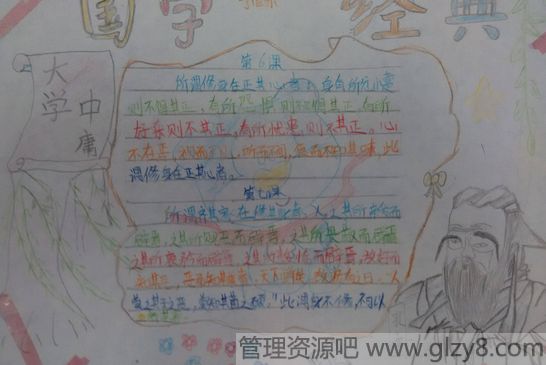 国学 经典
大学
中庸
第6课
所谓修身在正其心者，身有所忿懥
则不得其正，有所恐惧则不得其正，有所
好乐则不其正，有所忧患，则不其正。心
不在焉，视而不见，听而不闻，食而不知其味，此
谓修身在正其心者。
第七课
所谓齐其家在修其身者，人之其所亲爱而
辟焉，之其所贱恶而辟焉，之其所畏敬而辟焉
之其所哀矜而辟焉，之其所敖惰而辟焉，故好而
知其恶，恶而知其美者，天下鲜矣，故谚有之曰，"人
莫知其子之恶，莫知其苗之硕。"此谓身不修，不可以
管理资源吧 www.glzy8.com